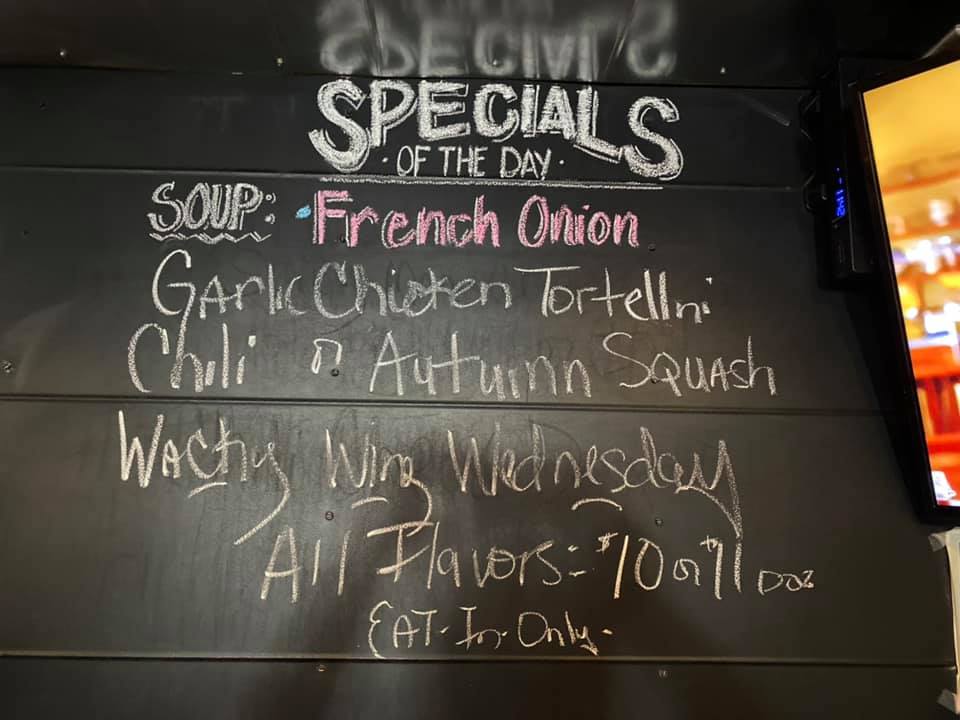 SPECIALS
· OF THE DAY ·
SOUP: · French Onion
Garlic Chicken Tortellni
Chili or Autumn Squash
Wacky Wing Wednesday
All Flavors: $10 or $11 Doz
EAT-In-Only.